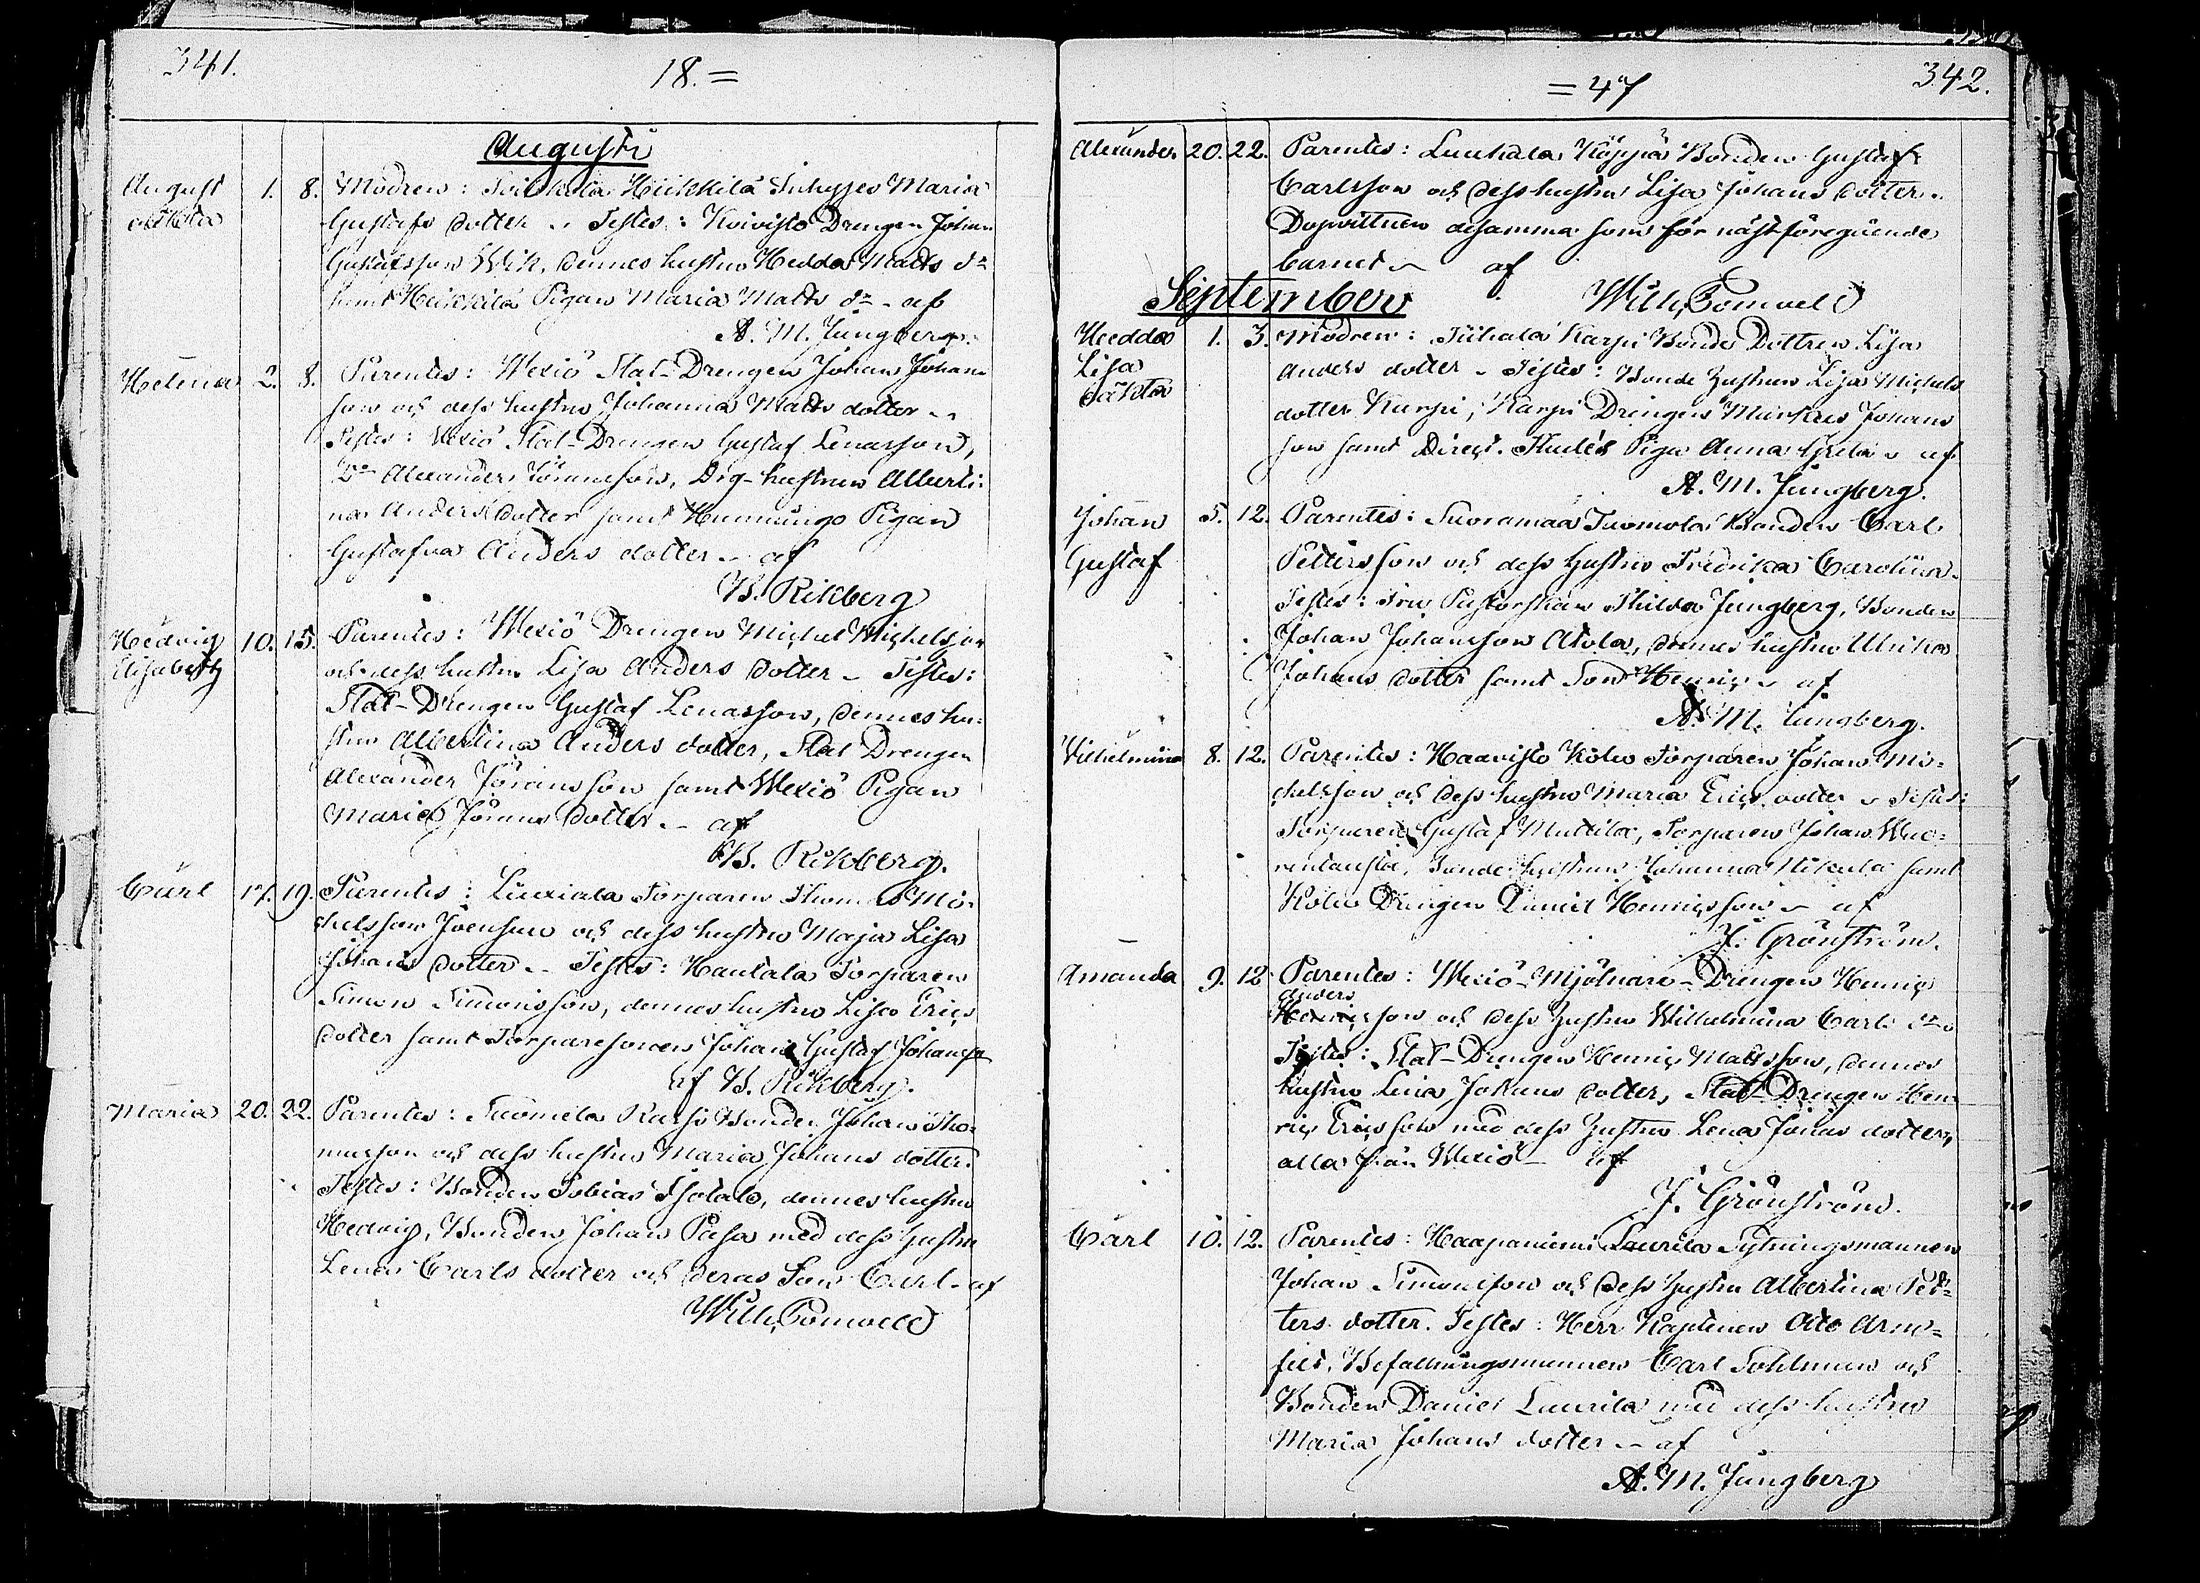 341.
18.=
Augusti
August oäkta 1. 8. Modren: Heikkilä Inhyses Maria
Gustafs dotter .. Testes: Koivisto Drengen Johan
Gustafsson Wik, dennes hustru Hedda Matts dr
samt Heikkilä Pigan Maria Matts dr - af
A. M. Jungberg.
Helena 2. 8. Parentes: Wexiö Stat-Drengen Johan Johans
son och dess hustru Johanna Matts dotter ..
Testes: Wexiö Stat-Drengen Gustaf Lenasson,
Dn Alexander Jöransson, Drg-hustrun Alberti:
na Anders dotter samt Pigan
Gustafva Anders dotter - af
B. Rikberg
Hedvig Elisabeth 10. 15. Parentes: Wexiö Drengen Michel Michelsson
och dess hustru Lisa Anders dotter - Testes:
Stat-Drengen Gustaf Lenasson, dennes hu:
stru Albertina Anders dotter, Stat Drengen
Alexander Jöransson samt Wexiö Pigan
Maria Jörans dotter - af
B. Rikberg.
Carl 17. 19. Parentes: Liuxiala Torparen Thomas Mi-
chelsson Joensuu och dess hustru Maja Lisa
Johans dotter .. Testes: Hautala Torparen
Simon Simonsson, dennes hustru Lisa Erics
dotter samt Torparesonen Johan Gustaf Johansson
af B. Rikberg.
Maria 20. 22. Parentes: Suomela Bonden Johan Tho-
masson och dess hustru Maria Johans dotter.
Testes: Bonden Tobias Isotalo, dennes hustru
Hedvig, Bonden Johan Pasa med dess hustru
Lena Carls dotter och deras Son Carl - af
Wilh. Pomoell
=47
342.
Alexander 20. 22. Parentes: Luukala Köppä Bonden Gustaf
Carlsson och dess hustru Lisa Johans dotter ..
Dopvittnen desamma som för nästföregående
barnet - af
Wilh. Pomoell
September
Hedda Lisa oäkta 1. 3. Modren: Karpi Bonde Dottren Lisa
Anders dotter - Testes: Bonde hustrun Lisa Michels
dotter Karpi, Karpi Drengen Markus Johans
son samt Pigan Anna Greta - af
A. M. Jungberg.
Johan Gustaf 5. 12. Parentes: Suoramaa Tuomola Bonden Carl
Pettersson och dess hustru Fredrika Carolina.
Testes: Fru Pastorskan Hilda Jungberg, Bonden
Johan Johansson Alola, dennes hustru Ulrika
Johans dotter samt Son Henric - af
A. M. Jungberg.
Vilhelmina 8. 12. Parentes: Haavisto Kolu Torparen Johan Mi-
chelsson och dess hustru Maria Erics dotter - Testes:
Torparen Gustaf Mattila, Torparen Johan Wuo-
rentausta, hustrun Johanna samt
Kolu Drengen Daniel Henricsson - af
J. Grönström.
Amanda 9. 12 Parentes: Wexiö-Mjölnare-Drengen Henric
Anders
Henricsson och dess hustru Wilhelmina Carls dr
Testes: Stat-Drengen Henric Mattsson, dennes
hustru Lena Johans dotter, Stat-Drengen Hen-
ric Ericsson med dess hustru Lena Jonas dotter,
alla från Wexiö - af
J. Grönström.
Carl 10. 12. Parentes: Haapaniemi Laurila Sytningsmannen
Johan Simonsson och dess hustru Albertina Pet=
ters dotter. Testes: Herr Kaptenen Otto Arm=
felt, Befallningsmannen Carl Tohlman och
Bonden Daniel Laurila med dess hustru
Maria Johans dotter - af
A. M. Jungberg